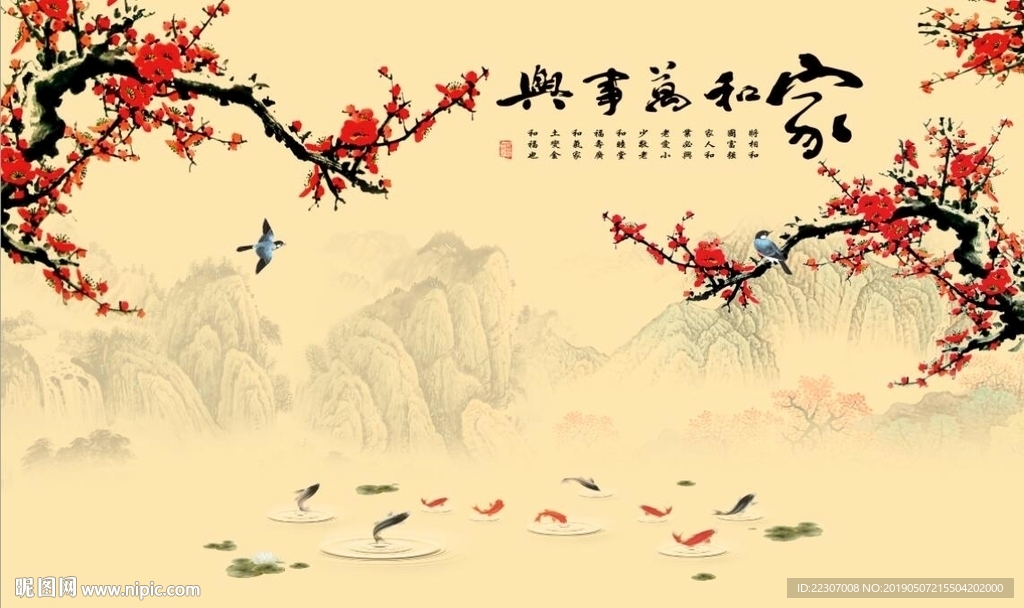 家和萬事興
將相和
國富强
家人和
業必興
老愛小
少敬老
和睦堂
福壽廣
和氣家
土變金
和福也
昵图网 www.nipic.com
ID:22307008 NO:20190507215504202000